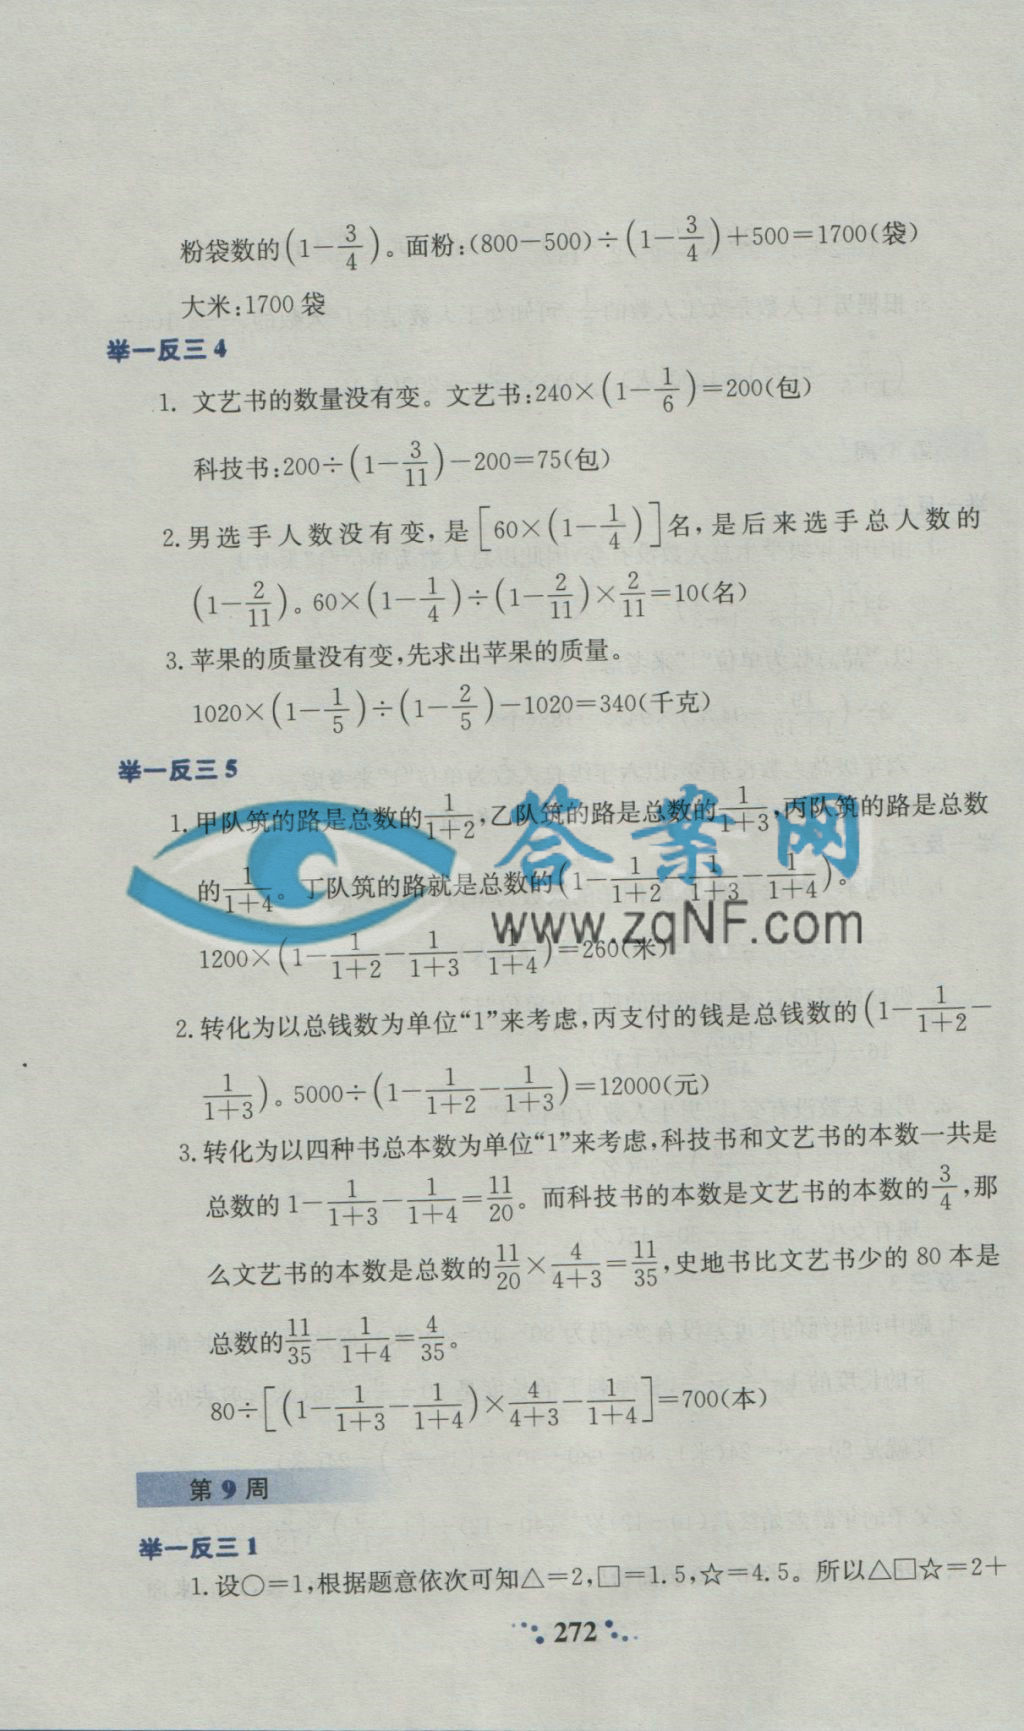 粉袋数的(1－3/4)。面粉:(800－500)÷(1－3/4)＋500＝1700(袋)
大米:1700 袋
举一反三 4
1. 文艺书的数量没有变。文艺书:240×(1－1/6)＝200(包)
科技书:200÷(1－3/11)－200＝75(包)
2. 男选手人数没有变,是[60×(1－1/4)]名,是后来选手总人数的
(1－2/11)。60×(1－1/4)÷(1－2/11)×2/11＝10(名)
3. 苹果的质量没有变,先求出苹果的质量。
1020×(1－1/5)÷(1－2/5)－1020＝340(千克)
举一反三 5
1. 甲队筑的路是总数的1/(1＋2),乙队筑的路是总数的1/(1＋3),丙队筑的路是总数
答案网
的1/(1＋4)。丁队筑的路就是总数的(1－1/(1＋2)－1/(1＋3)－1/(1＋4))。
www.zqNF.com
1200×(1－1/(1＋2)－1/(1＋3)－1/(1＋4))＝260(米)
2. 转化为以总钱数为单位“1”来考虑,丙支付的钱是总钱数的(1－1/(1＋2)－
1/(1＋3))。5000÷(1－1/(1＋2)－1/(1＋3))＝12000(元)
3. 转化为以四种书总本数为单位“1”来考虑,科技书和文艺书的本数一共是
总数的 1－1/(1＋3)－1/(1＋4)＝11/20。而科技书的本数是文艺书的本数的3/4,那
么文艺书的本数是总数的11/20×4/(4＋3)＝11/35,史地书比文艺书少的 80 本是
总数的11/35－1/(1＋4)＝4/35。
80÷[(1－1/(1＋3)－1/(1＋4))×4/(4＋3)－1/(1＋4)]＝700(本)
第 9 周
举一反三 1
1. 设○＝1,根据题意依次可知△＝2,□＝1.5,☆＝4.5。所以△□☆＝2＋
272